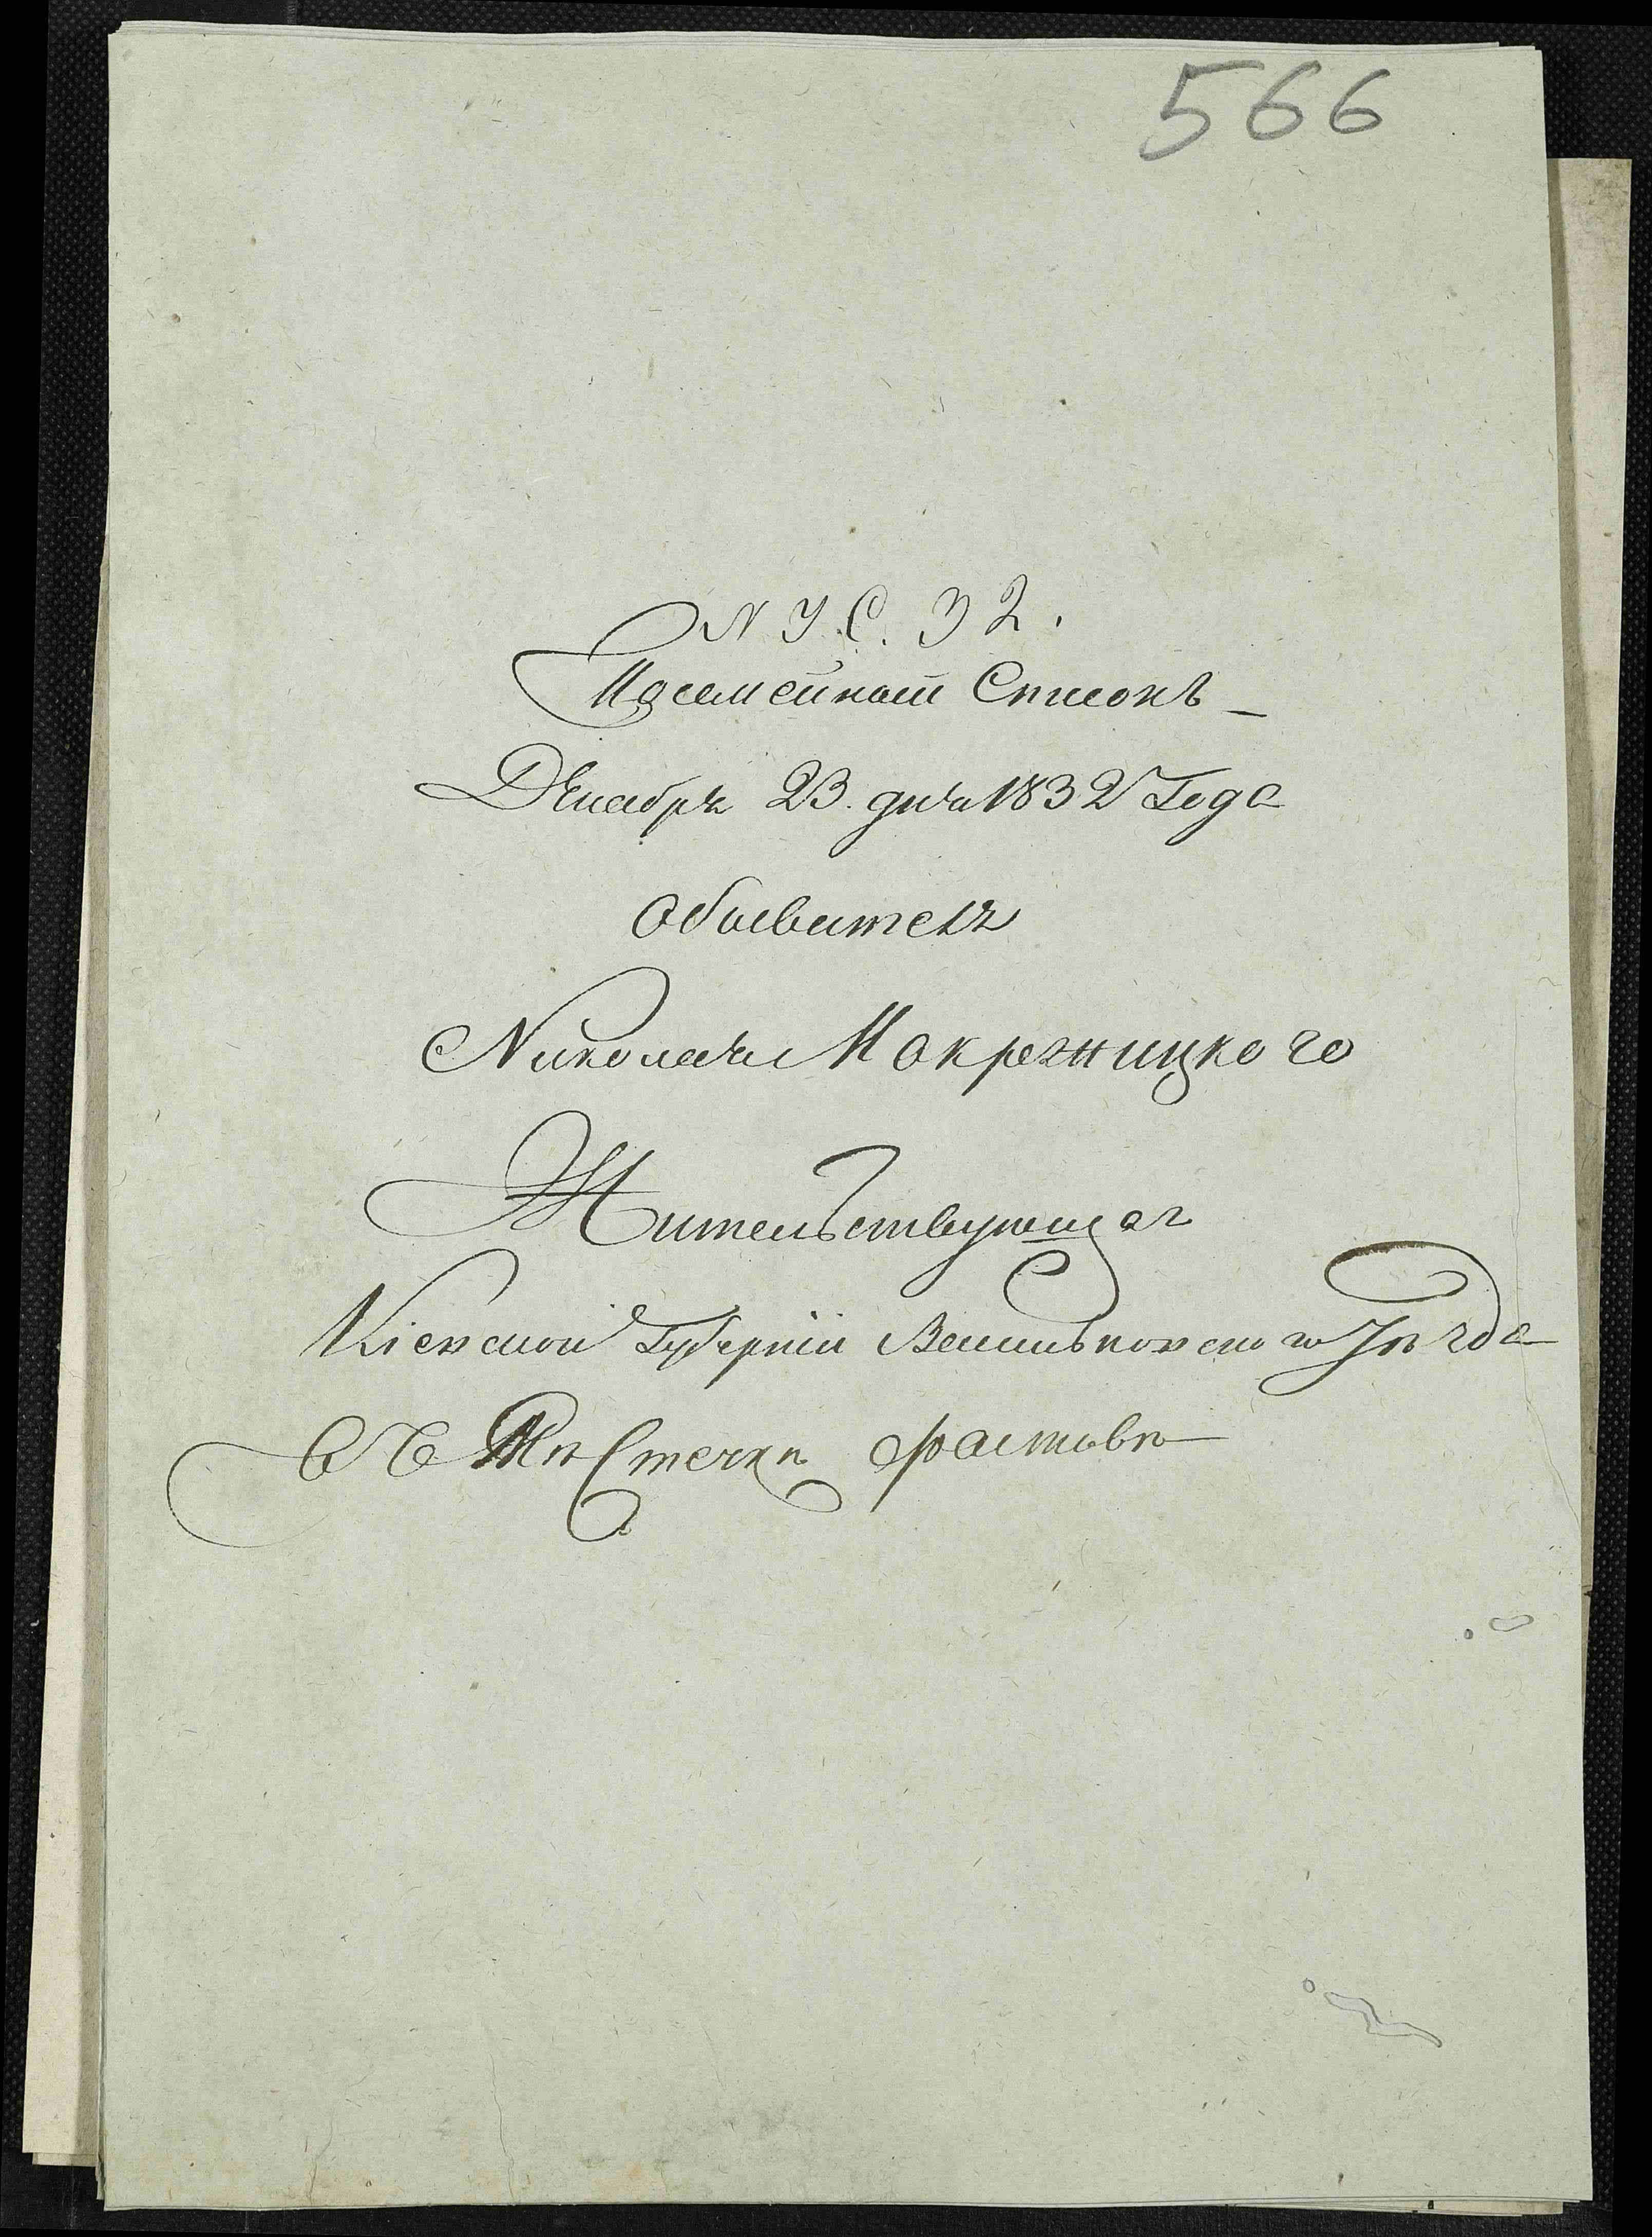 566
N У.С. 32.
Посемейной Списокъ
Декабря 23. дня 1832 Года
Обывателя
Николая Мокрежицкого
Жительствующаг
Кіевской Губерніи Васильковского Уѣзда
Въ Мѣстечкѣ Фастовѣ